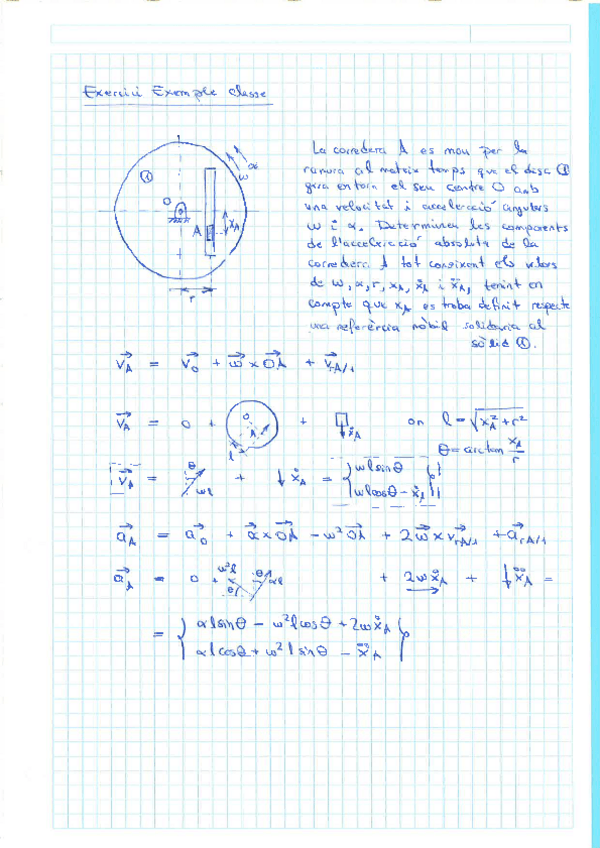 Exercici Exemple classe
La corredera A es mou per la
ranura al mateix temps que el disc ①
gira entorn el seu centre O amb
una velocitat i acceleració angulars
ω i α. Determineu les components
de l'acceleració absoluta de la
corredera A tot coneixent els valors
de ω, α, r, xA, ẋA i ẍA, tenint en
compte que xA es troba definit respecte
una referència mòbil solidaria al
sòlid ①.
① O A xA r ω α
v⃗A = v⃗O + ω⃗ × O⃗A + v⃗rA/1
v⃗A = 0 + O A l + ẋA on l = √(xA² + r²)
θ = arctan xA/r
v⃗A = θ ωl + ↓ ẋA = { ωl sinθ
ωl cosθ − ẋA }
a⃗A = a⃗O + α⃗ × O⃗A − ω² O⃗A + 2ω⃗ × v⃗rA/1 + a⃗rA/1
a⃗A = 0 + ω²l θ θ αl + 2ωẋA + ↓ ẍA =
= { αl sinθ − ω²l cosθ + 2ωẋA
αl cosθ + ω²l sinθ − ẍA }